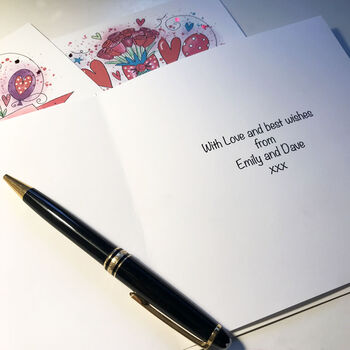 With Love and best wishes
from
Emily and Dave
xxx